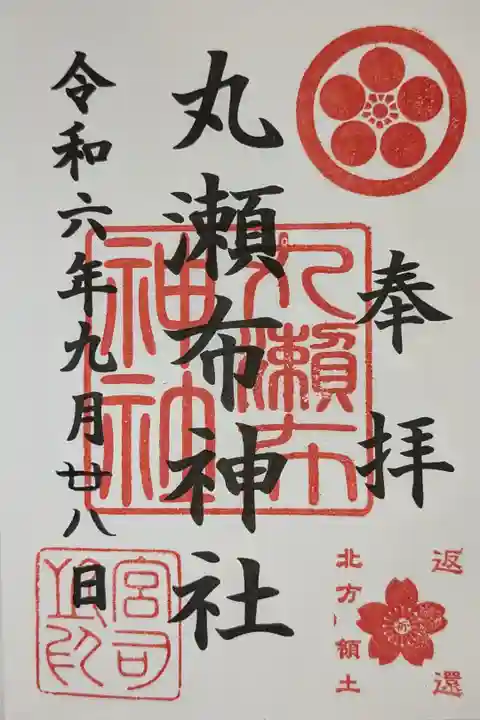 奉拝
丸瀬布神社
令和六年九月廿八日
丸瀬布
神社
宮司
之印
返還
北方領土
祈